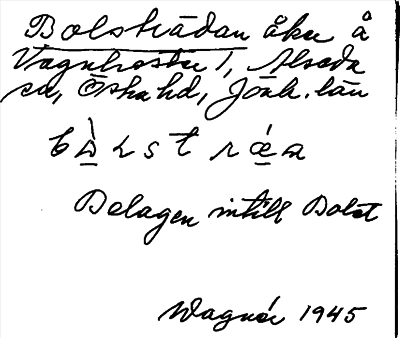 Bolsträdan åker å
Vagnhester 1, Alseda
sn, Östra hd, Jönk. län
Belägen intill Bolst
Wagnér 1945